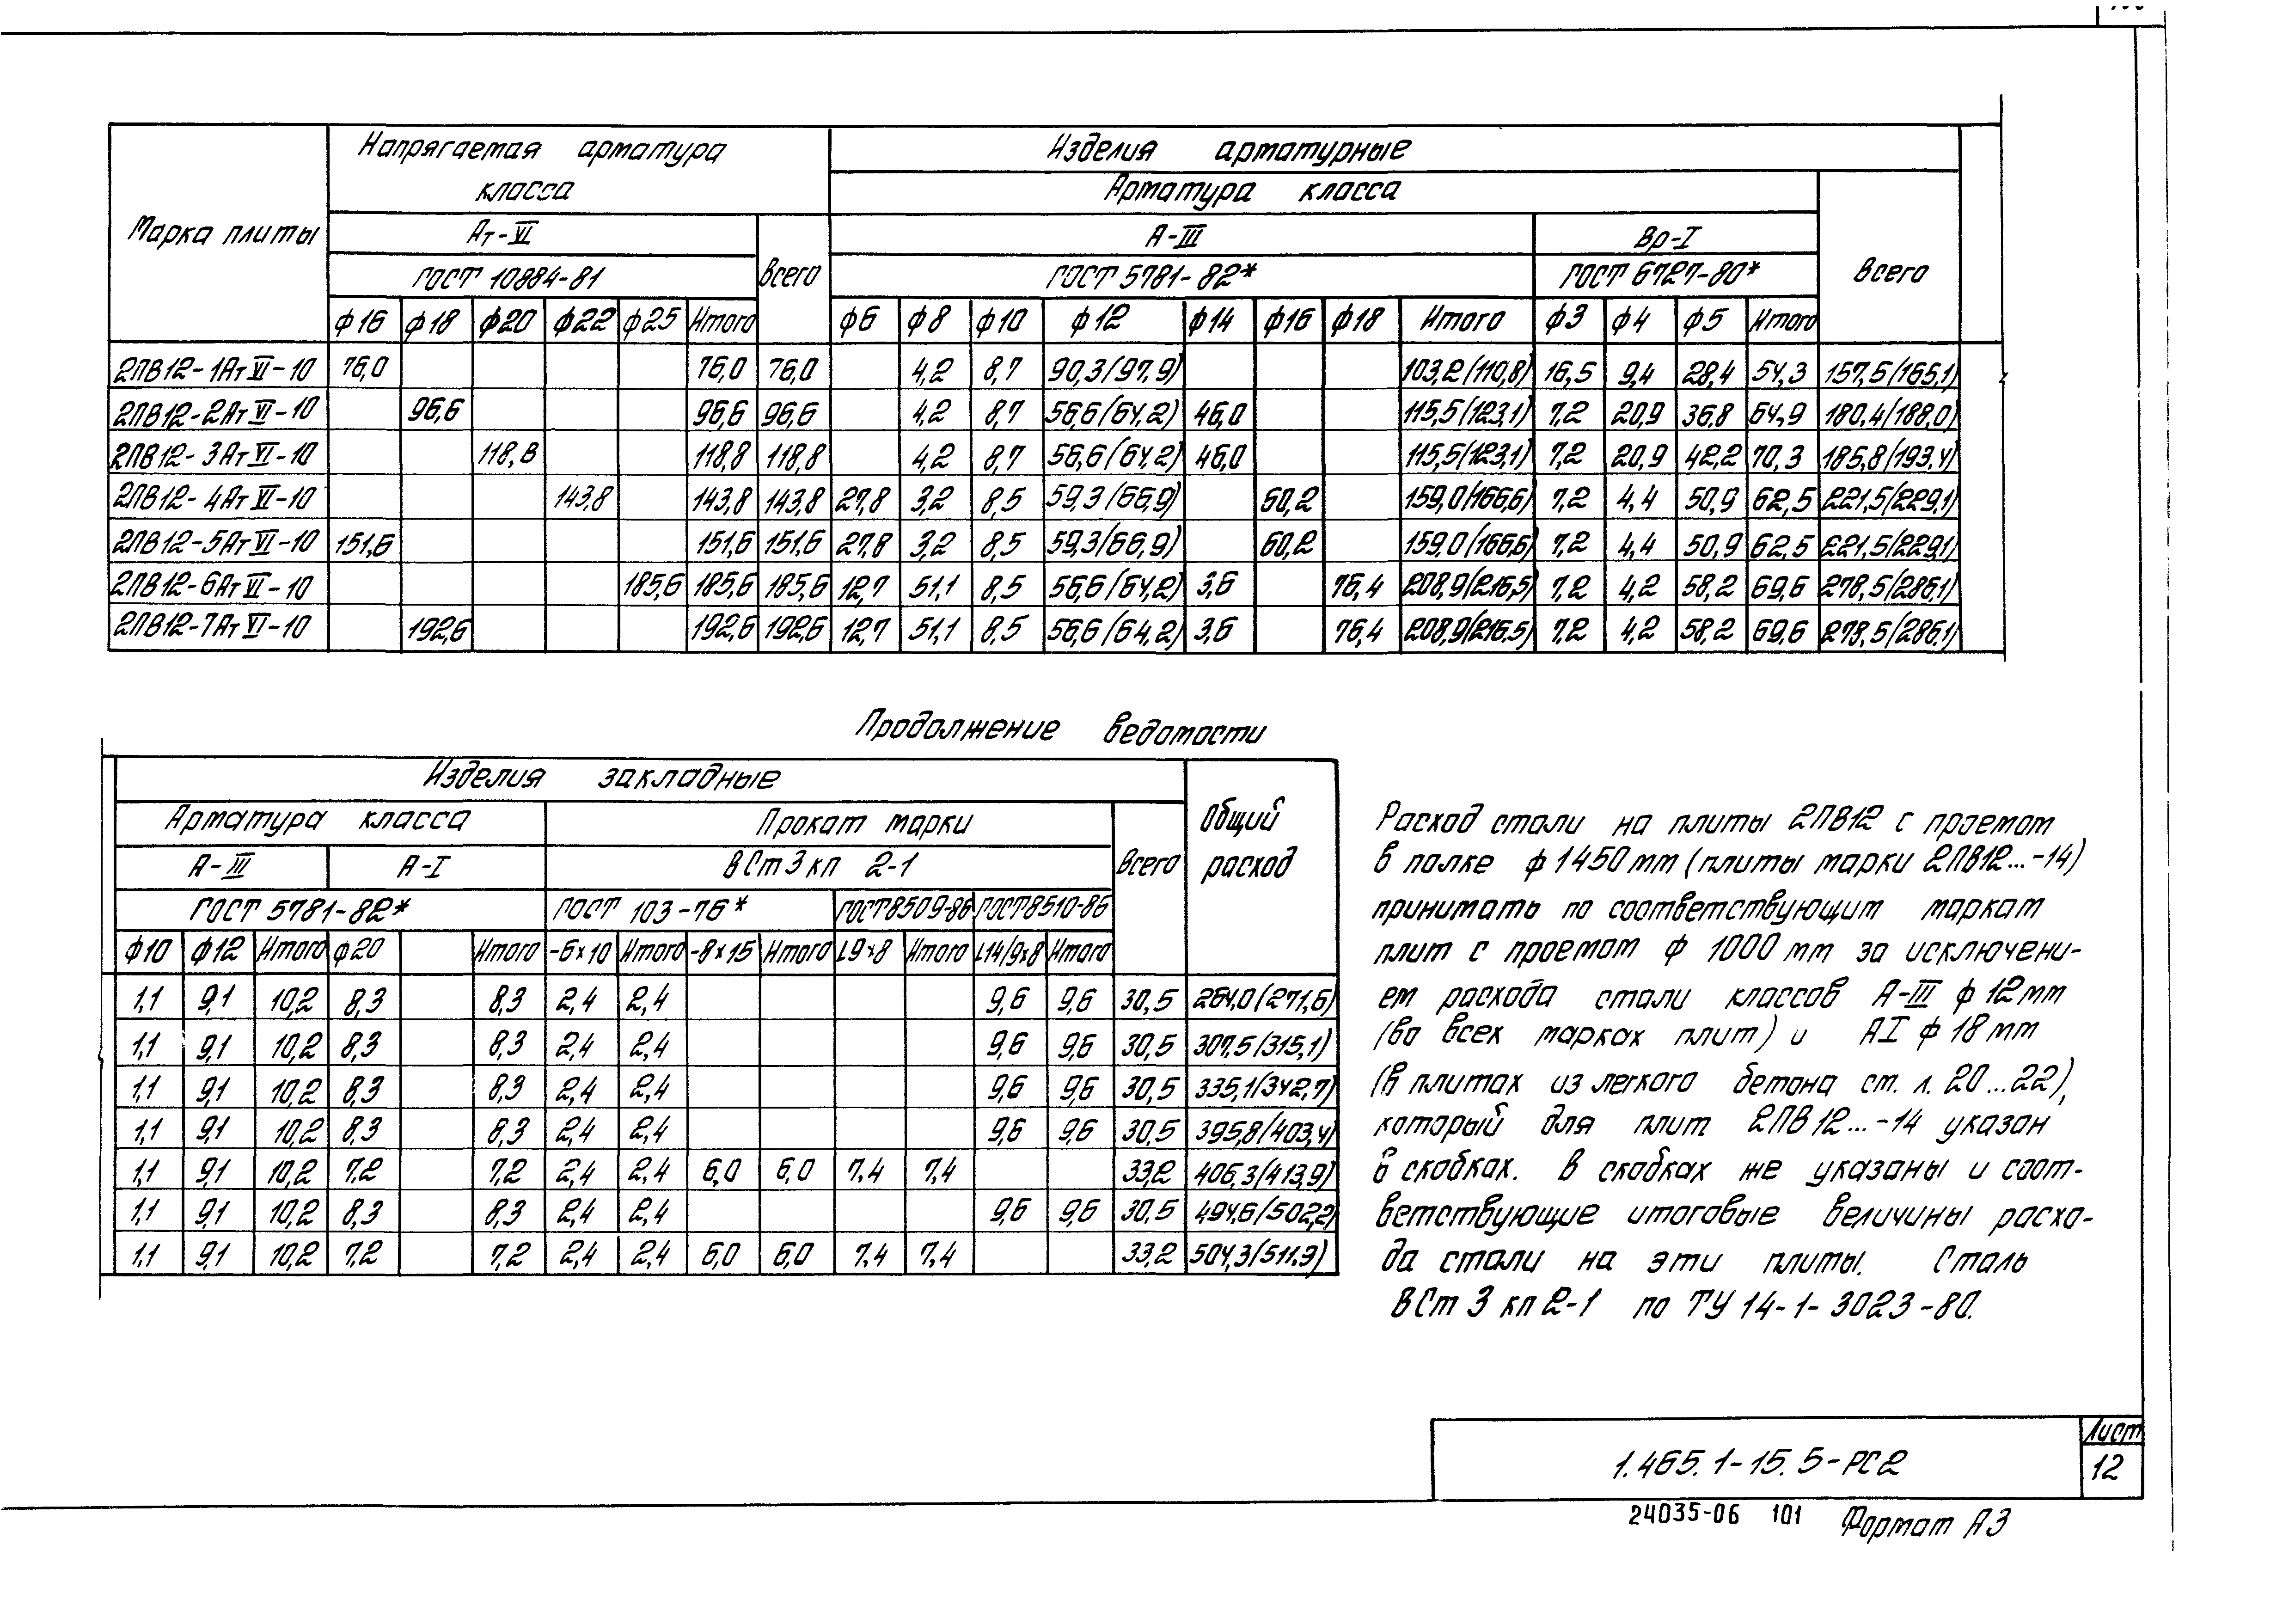 Марка плиты | Напрягаемая арматура класса | Изделия арматурные
Арматура класса
Ат-VI | Всего | А-III | Вр-I | Всего
ГОСТ 10884-81 | ГОСТ 5781-82* | ГОСТ 6727-80*
ф16 | ф18 | ф20 | ф22 | ф25 | Итого | ф6 | ф8 | ф10 | ф12 | ф14 | ф16 | ф18 | Итого | ф3 | ф4 | ф5 | Итого
2ПВ12-1АтVI-10 | 76,0 | | | | | 76,0 | 76,0 | | 4,2 | 8,7 | 90,3/97,9) | | | | 103,2/110,8) | 16,5 | 9,4 | 28,4 | 54,3 | 157,5/165,1)
2ПВ12-2АтVI-10 | | 96,6 | | | | 96,6 | 96,6 | | 4,2 | 8,7 | 56,6/64,2) | 46,0 | | | 115,5/123,1) | 7,2 | 20,9 | 36,8 | 64,9 | 180,4/188,0)
2ПВ12-3АтVI-10 | | | 118,8 | | | 118,8 | 118,8 | | 4,2 | 8,7 | 56,6/64,2) | 46,0 | | | 115,5/123,1) | 7,2 | 20,9 | 42,2 | 70,3 | 185,8/193,4)
2ПВ12-4АтVI-10 | | | | 143,8 | | 143,8 | 143,8 | 27,8 | 3,2 | 8,5 | 59,3/66,9) | | 60,2 | | 159,0/166,6) | 7,2 | 4,4 | 50,9 | 62,5 | 221,5/229,1)
2ПВ12-5АтVI-10 | 151,6 | | | | | 151,6 | 151,6 | 27,8 | 3,2 | 8,5 | 59,3/66,9) | | 60,2 | | 159,0/166,6) | 7,2 | 4,4 | 50,9 | 62,5 | 221,5/229,1)
2ПВ12-6АтVI-10 | | | | | 185,6 | 185,6 | 185,6 | 12,7 | 51,1 | 8,5 | 56,6/64,2) | 3,6 | | 76,4 | 208,9/216,5) | 7,2 | 4,2 | 58,2 | 69,6 | 278,5/286,1)
2ПВ12-7АтVI-10 | | 192,6 | | | | 192,6 | 192,6 | 12,7 | 51,1 | 8,5 | 56,6/64,2) | 3,6 | | 76,4 | 208,9/216,5) | 7,2 | 4,2 | 58,2 | 69,6 | 278,5/286,1)
Продолжение ведомости
Изделия закладные | Общий расход
Арматура класса | Прокат марки | Всего
А-III | А-I | ВСт3кп 2-1
ГОСТ 5781-82* | ГОСТ 103-76* | ГОСТ8509-86 | ГОСТ8510-86
ф10 | ф12 | Итого | ф20 | | Итого | -6×10 | Итого | -8×15 | Итого | L9×8 | Итого | L14/9×8 | Итого
1,1 | 9,1 | 10,2 | 8,3 | | 8,3 | 2,4 | 2,4 | | | | | 9,6 | 9,6 | 30,5 | 264,0(271,6)
1,1 | 9,1 | 10,2 | 8,3 | | 8,3 | 2,4 | 2,4 | | | | | 9,6 | 9,6 | 30,5 | 307,5/315,1)
1,1 | 9,1 | 10,2 | 8,3 | | 8,3 | 2,4 | 2,4 | | | | | 9,6 | 9,6 | 30,5 | 335,1/342,7)
1,1 | 9,1 | 10,2 | 8,3 | | 8,3 | 2,4 | 2,4 | | | | | 9,6 | 9,6 | 30,5 | 395,8/403,4)
1,1 | 9,1 | 10,2 | 7,2 | | 7,2 | 2,4 | 2,4 | 6,0 | 6,0 | 7,4 | 7,4 | | | 33,2 | 406,3/413,9)
1,1 | 9,1 | 10,2 | 8,3 | | 8,3 | 2,4 | 2,4 | | | | | 9,6 | 9,6 | 30,5 | 494,6/502,2)
1,1 | 9,1 | 10,2 | 7,2 | | 7,2 | 2,4 | 2,4 | 6,0 | 6,0 | 7,4 | 7,4 | | | 33,2 | 504,3/511,9)
Расход стали на плиты 2ПВ12 с проемом
в полке ф 1450 мм (плиты марки 2ПВ12...-14)
принимать по соответствующим маркам
плит с проемом ф 1000 мм за исключени-
ем расхода стали классов А-III ф 12мм
(во всех марках плит) и АI ф 18 мм
(в плитах из легкого бетона ст. л. 20...22),
который для плит 2ПВ12...-14 указан
в скобках. В скобках же указаны и соот-
ветствующие итоговые величины расхо-
да стали на эти плиты. Сталь
ВСт 3 кп 2-1 по ТУ 14-1-3023-80.
1.465.1-15.5-РС2
Лист
12
24035-06 101 Формат А3